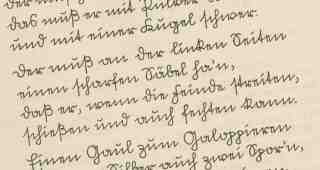 das muß er mit Pulver
und mit einer Kugel schwer.
Der muß an der linken Seiten
einen scharfen Säbel ha'n,
daß er, wenn die Feinde streiten,
schießen und auch fechten kann.
Einen Gaul zum Galoppieren
Silber auch zwei Spor'n,